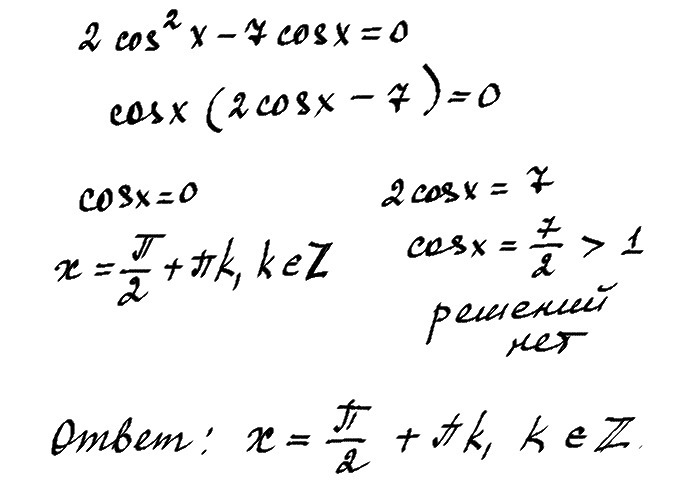 2 cos² x − 7 cos x = 0
cos x (2 cos x − 7) = 0
cos x = 0
x = π/2 + πk, k ∈ ℤ
2 cos x = 7
cos x = 7/2 > 1
решений
нет
Ответ: x = π/2 + πk, k ∈ ℤ.